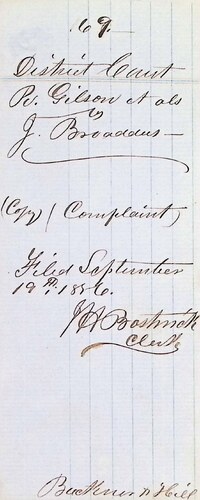 69.
District Court
R. Gilson et als
vs
J. Broaddus
(Copy) (Complaint)
Filed September
19th. 1856.
Bostwick
Clerk
Buckner & Hill